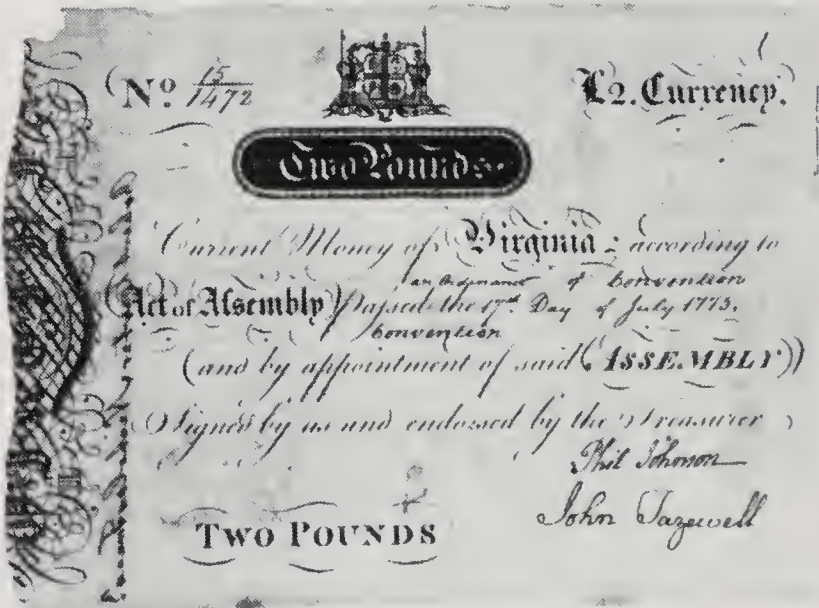 No. 15/1472
£2. Currency.
Two Pounds
Current Money of Virginia: according to
an Ordinance of Convention
(Act of Assembly) passed the 17th Day of July 1775.
Convention
(and by appointment of said (ASSEMBLY))
Signed by us and endorsed by the Treasurer
Phil Johnson
John Tazewell
TWO POUNDS